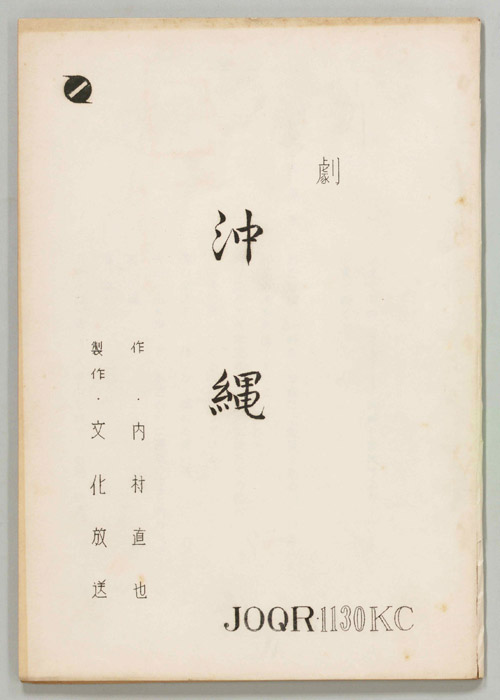 劇
沖縄
作・内村直也
製作・文化放送
JOQR・1130KC